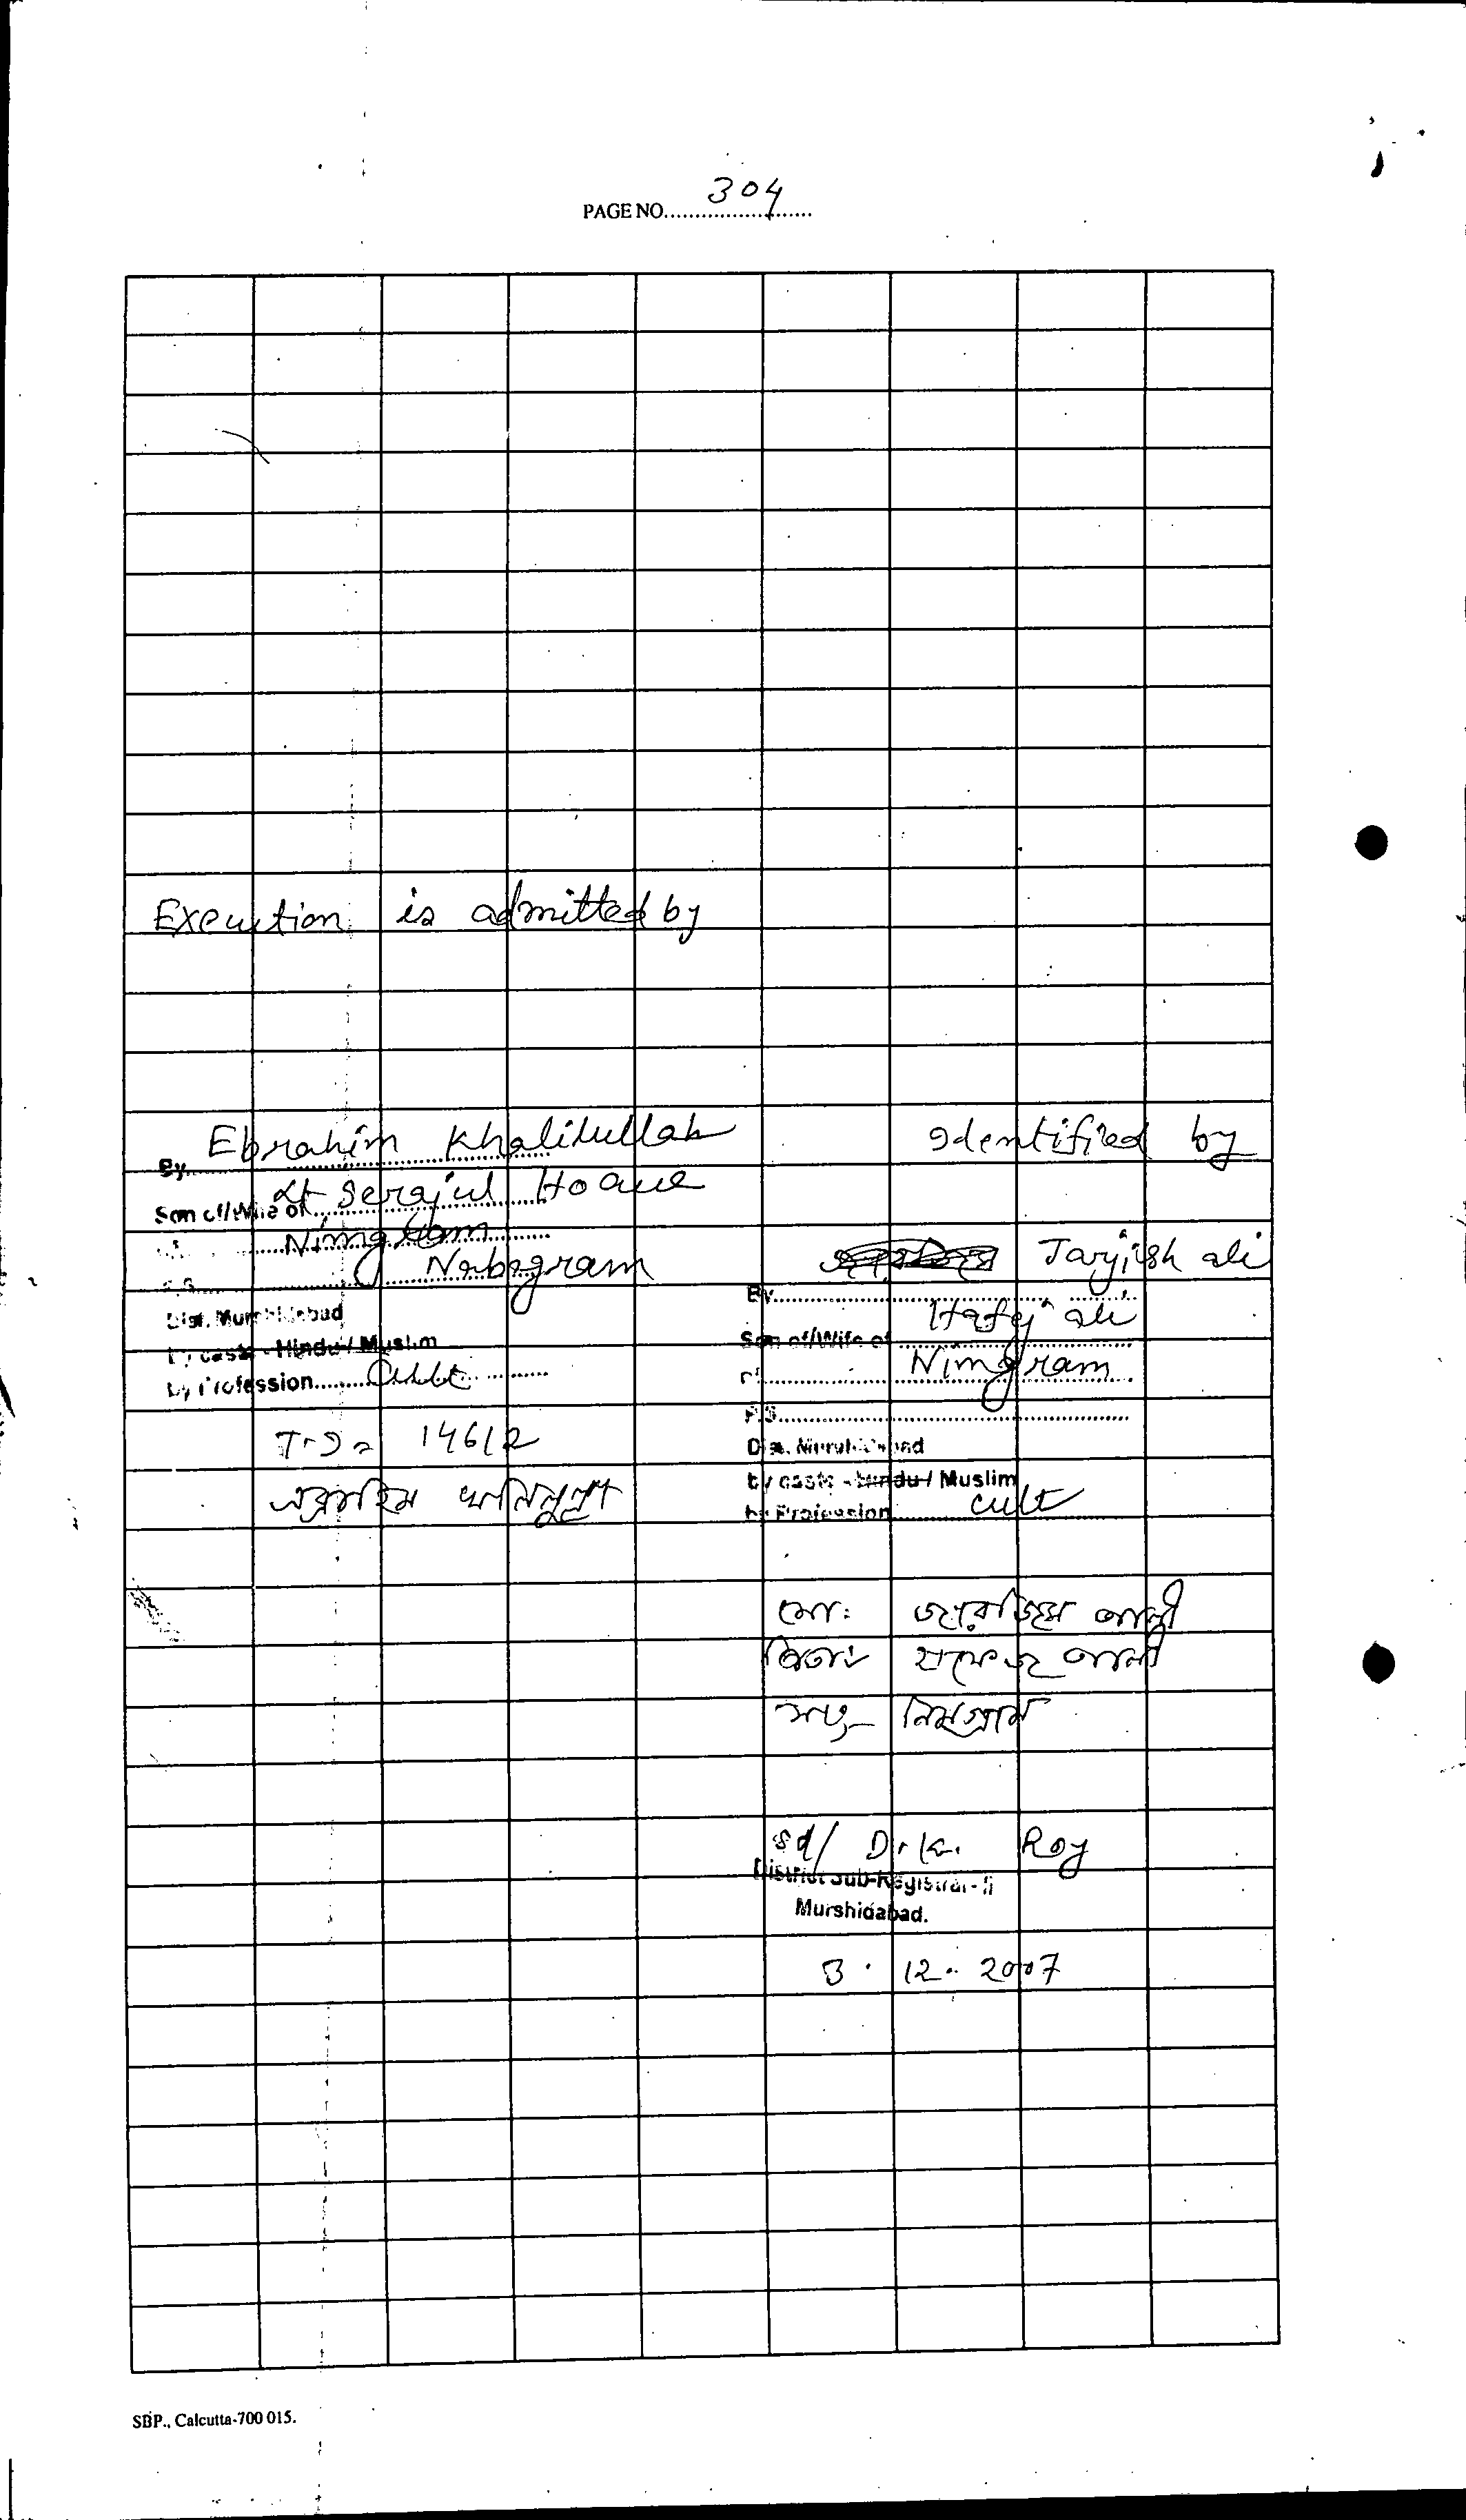 PAGE NO. 304
Execution is admitted by
By Ebrahim Khalilullah
Son of/Wife of Lt Serajul Hoque
Nimgram
P.S. Nabagram
Dist. Murshidabad
by caste - Hindu / Muslim
by Profession Cult
14612
এব্রাহিম খলিলুল্লা
Identified by
By Tarjish ali
Son of/Wife of Hafej ali
Nimgram
P.S.
Dist. Murshidabad
by caste - Hindu / Muslim
by Profession cult
মোঃ আলী
পিতা হাফেজ আলী
সাং- নিমগ্রাম
sd/ D. K. Roy
District Sub-Registrar - II
Murshidabad.
3. 12. 2007
SBP., Calcutta-700 015.